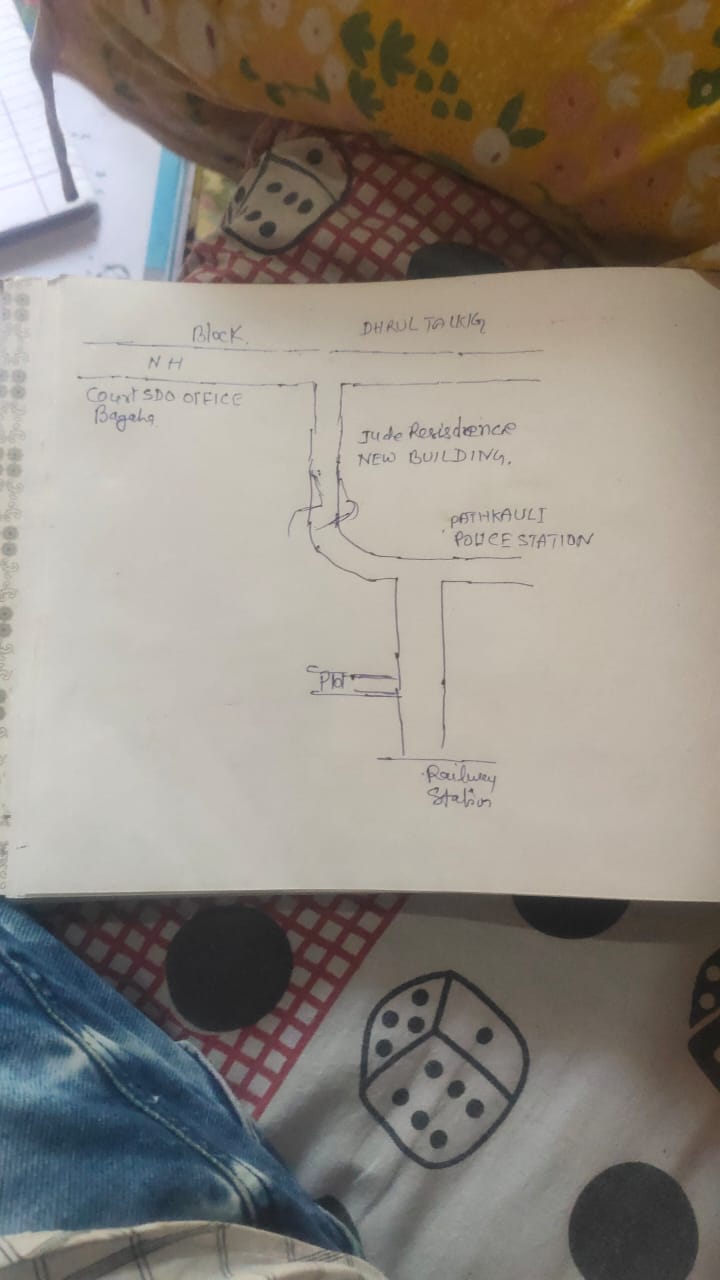 Block.
DHRUL TALKIG
NH
Court SDO OFFICE
Bagaha
Jude Resisdence
NEW BUILDING.
PATHKAULI
POLICE STATION
Plot
Railway
Station